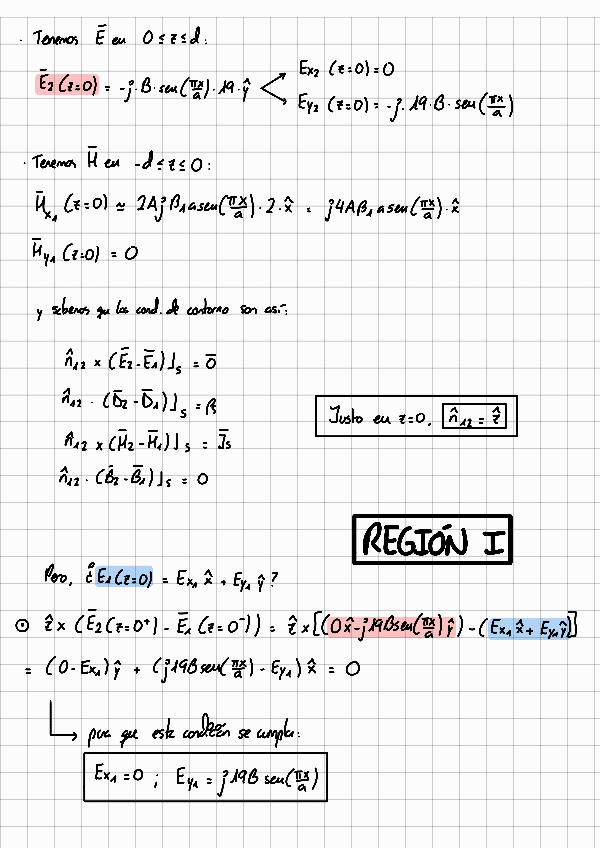 · Tenemos Ē en 0 ≤ z ≤ d:
Ē₂(z=0) = -j·B·sen(πx/a)·19·ŷ
Ex₂ (z=0)=0
Ey₂ (z=0) = -j·19·B·sen(πx/a)
· Tenemos H̄ en -d ≤ z ≤ 0:
H̄x₁ (z=0) ≃ 2Ajβ₁a sen(πx/a)·2·x̂ = j4Aβ₁ a sen(πx/a)·x̂
H̄y₁ (z=0) = 0
y sabemos que las cond. de contorno son así:
n̂₁₂ × (Ē₂-Ē₁)⌋s = 0̄
n̂₁₂ · (D̄₂-D̄₁)⌋s = ρs
n̂₁₂ × (H̄₂-H̄₁)⌋s = J̄s
n̂₁₂ · (B̄₂-B̄₁)⌋s = 0
Justo en z=0, n̂₁₂ = ẑ
REGIÓN I
Pero, ¿E₁(z=0) = Ex₁ x̂ + Ey₁ ŷ?
⊙ ẑ × (Ē₂(z=0⁺) - Ē₁(z=0⁻)) = ẑ × [(0x̂-j19Bsen(πx/a)ŷ)-(Ex₁x̂+Ey₁ŷ)]
= (0-Ex₁)ŷ + (j19Bsen(πx/a) - Ey₁)x̂ = 0
para que esta condición se cumpla:
Ex₁=0 ; Ey₁ = j19B sen(πx/a)